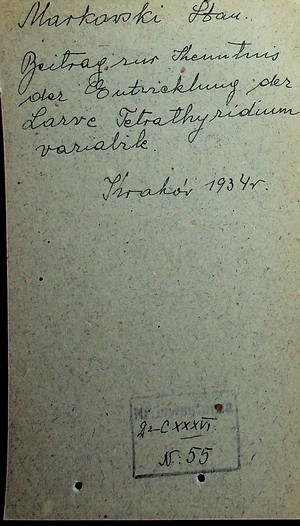 Markowski Stan.
Beitrag zur Kenntnis
der Entwicklung der
Larve Tetrathyridium
variabile.
Kraków 1934r.
2-CXXXVI.
N: 55